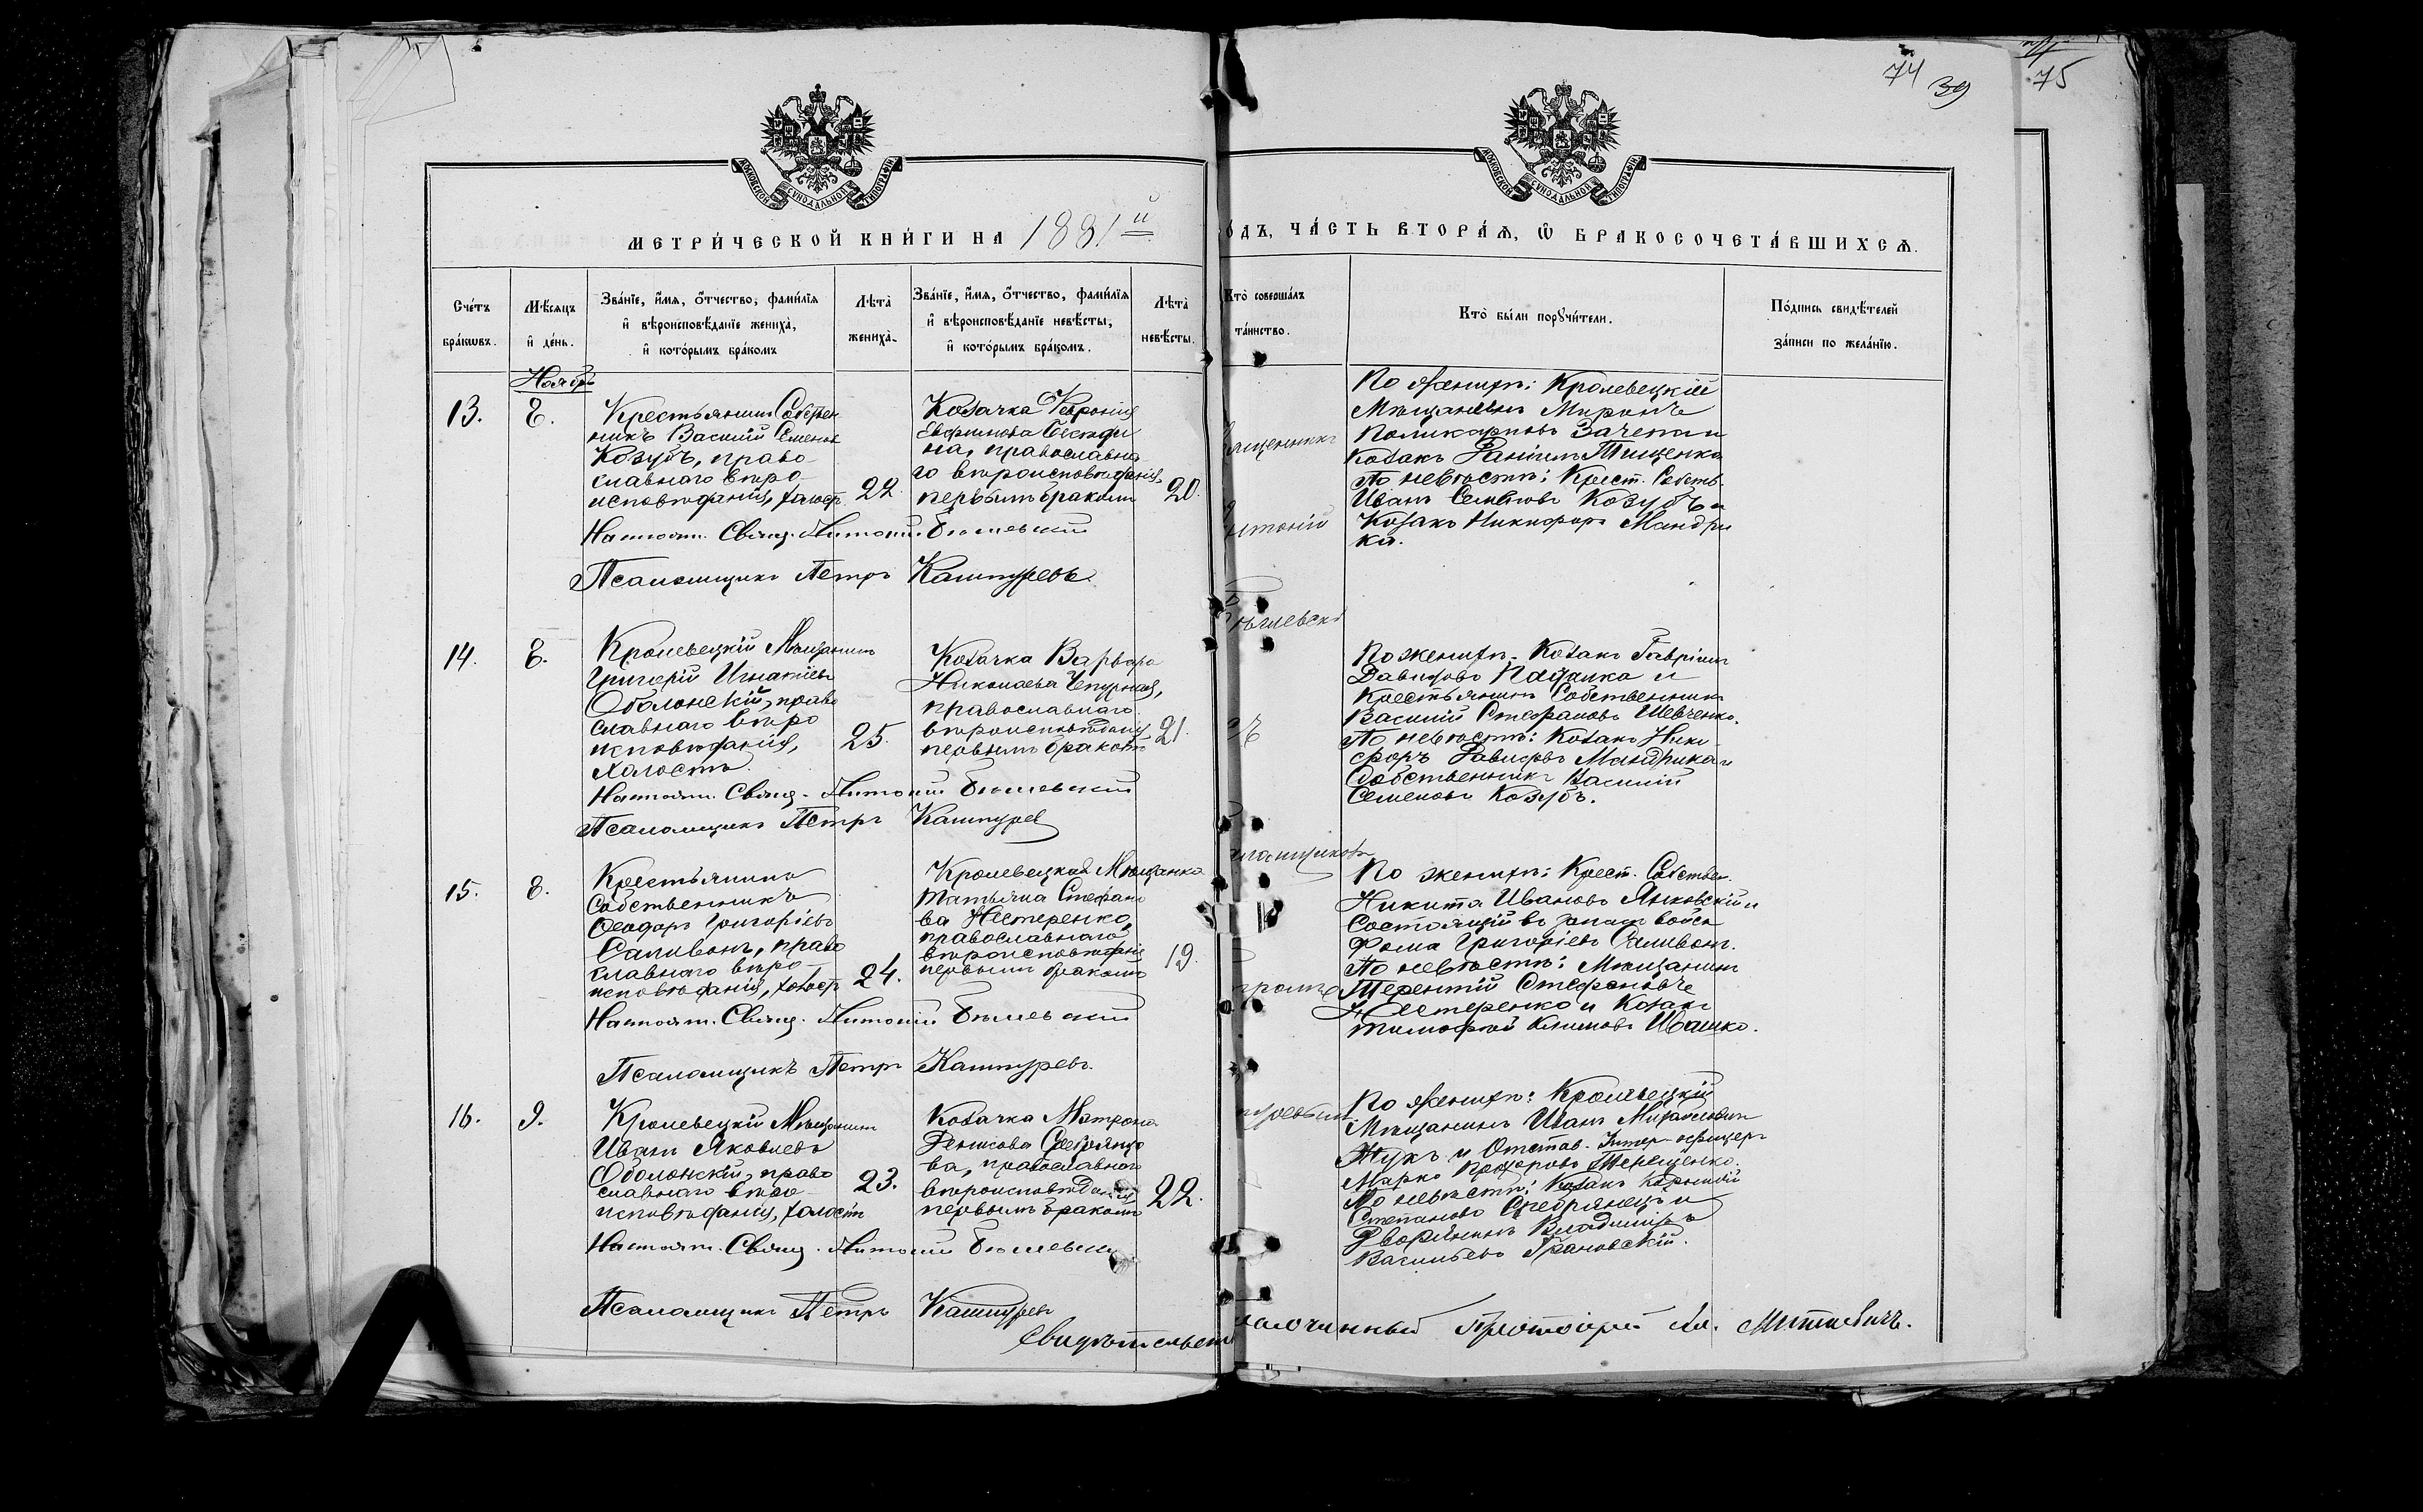 74 39
75
МОСКОВСКОЙ СѴНОДАЛЬНОЙ ТИПОГРАФІИ
МОСКОВСКОЙ СѴНОДАЛЬНОЙ ТИПОГРАФІИ
МЕТРИ́ЧЕСКОЙ КНИ́ГИ НА 1881й
о́дъ, ЧА́СТЬ ВТОРА́Ѧ, Ѽ БРАКОСОЧЕТА́ВШИХСѦ.
Сче́тъ бра́кѡвъ.
Мѣ́сѧцъ и҆ де́нь.
Зва́нїе, и҆́мѧ, ѻ҆́тчество, фами́лїѧ
и҆ вѣроисповѣ́данїе жениха̀,
и҆ кото́рымъ бра́комъ
Лѣ́та̀ жениха̀.
Зва́нїе, и҆́мѧ, ѻ҆́тчество, фами́лїѧ
и҆ вѣроисповѣ́данїе невѣ́сты,
и҆ кото́рымъ бра́комъ.
Лѣ́та̀ невѣ́сты.
Кто̀ соверша́лъ
та́инство.
Кто̀ бы́ли порꙋчи́тели.
По́дпись свидѣ́телей
за́писи по жела́нїю.
Ноябрь
13. 8.
Крестьянинъ Собствен
никъ Василій Семеновъ
Козубъ, право-
славнаго вѣро-
исповѣданія, холост
22.
Козачка Феврония
православна
го вѣроисповѣданія,
первымъ бракомъ
20.
Настоят. Свящ. Антоній
Псаломщикъ Петръ Каштуревъ
По женихѣ: Кролевецкій
Мѣщанинъ Миронъ
Поликарповъ Зачепа и
Козакъ Даніилъ Тищенко
По невѣстѣ: Крест. Собств.
Иванъ Семеновъ Козубъ и
Козакъ Никифоръ Мандри
ка.
14. 8.
Кролевецкій Мѣщанинъ
Григорій Игнатіевъ
Оболонскій, право
славнаго вѣро
исповѣданія,
холостъ.
25.
Козачка Варвара
Николаева Чепурная,
православнаго
вѣроисповѣданія
первымъ бракомъ
21.
Настоят. Свящ. Антоній
Псаломщикъ Петръ Каштурев
По женихѣ: Козакъ Гавріилъ
Давидовъ и
Крестьянинъ Собственникъ
Василій Стефановъ Шевченко.
По невѣстѣ: Козакъ Ники
форъ Давидовъ Мандрика и
Собственникъ Василій
Семеновъ Козубъ.
15. 8.
Крестьянинъ
Собственникъ
Ѳеодоръ Григоріевъ
Саливонъ, право
славнаго вѣро-
исповѣданія, холост
24.
Кролевецкая Мѣщанка
Татьяна Стефано
ва Нестеренко,
православнаго
вѣроисповѣданія
первымъ бракомъ
19.
Настоят. Свящ. Антоній
Псаломщикъ Петръ Каштуревъ.
По женихѣ: Крест. Собствен.
Никита Ивановъ Янковскій и
Состоящій въ запасѣ войскъ
Фома Григоріевъ Саливонъ.
По невѣстѣ: Мѣщанинъ
Терентій Стефановъ
Нестеренко и Козакъ
Тимофей Климовъ Ивашко.
16. 9.
Кролевецкій Мѣщанинъ
Иванъ Яковлевъ
Оболонскій, право
славнаго вѣро
исповѣданія, холостъ
23.
Козачка Матрона
Денисова Сребрянцо
ва, православнаго
вѣроисповѣданія
первымъ бракомъ
22.
Настоят. Свящ. Антоній
Псаломщикъ Петръ Каштуревъ
По женихѣ: Кролевецкій
Мѣщанинъ Иванъ Михайловъ
Жукъ и Отстав. Унтер-офицеръ
Марко Прохоровъ Терещенко.
По невѣстѣ: Козакъ
Степановъ Сребрянецъ и
Дворянинъ Владиміръ
Васильевъ Грановскій.